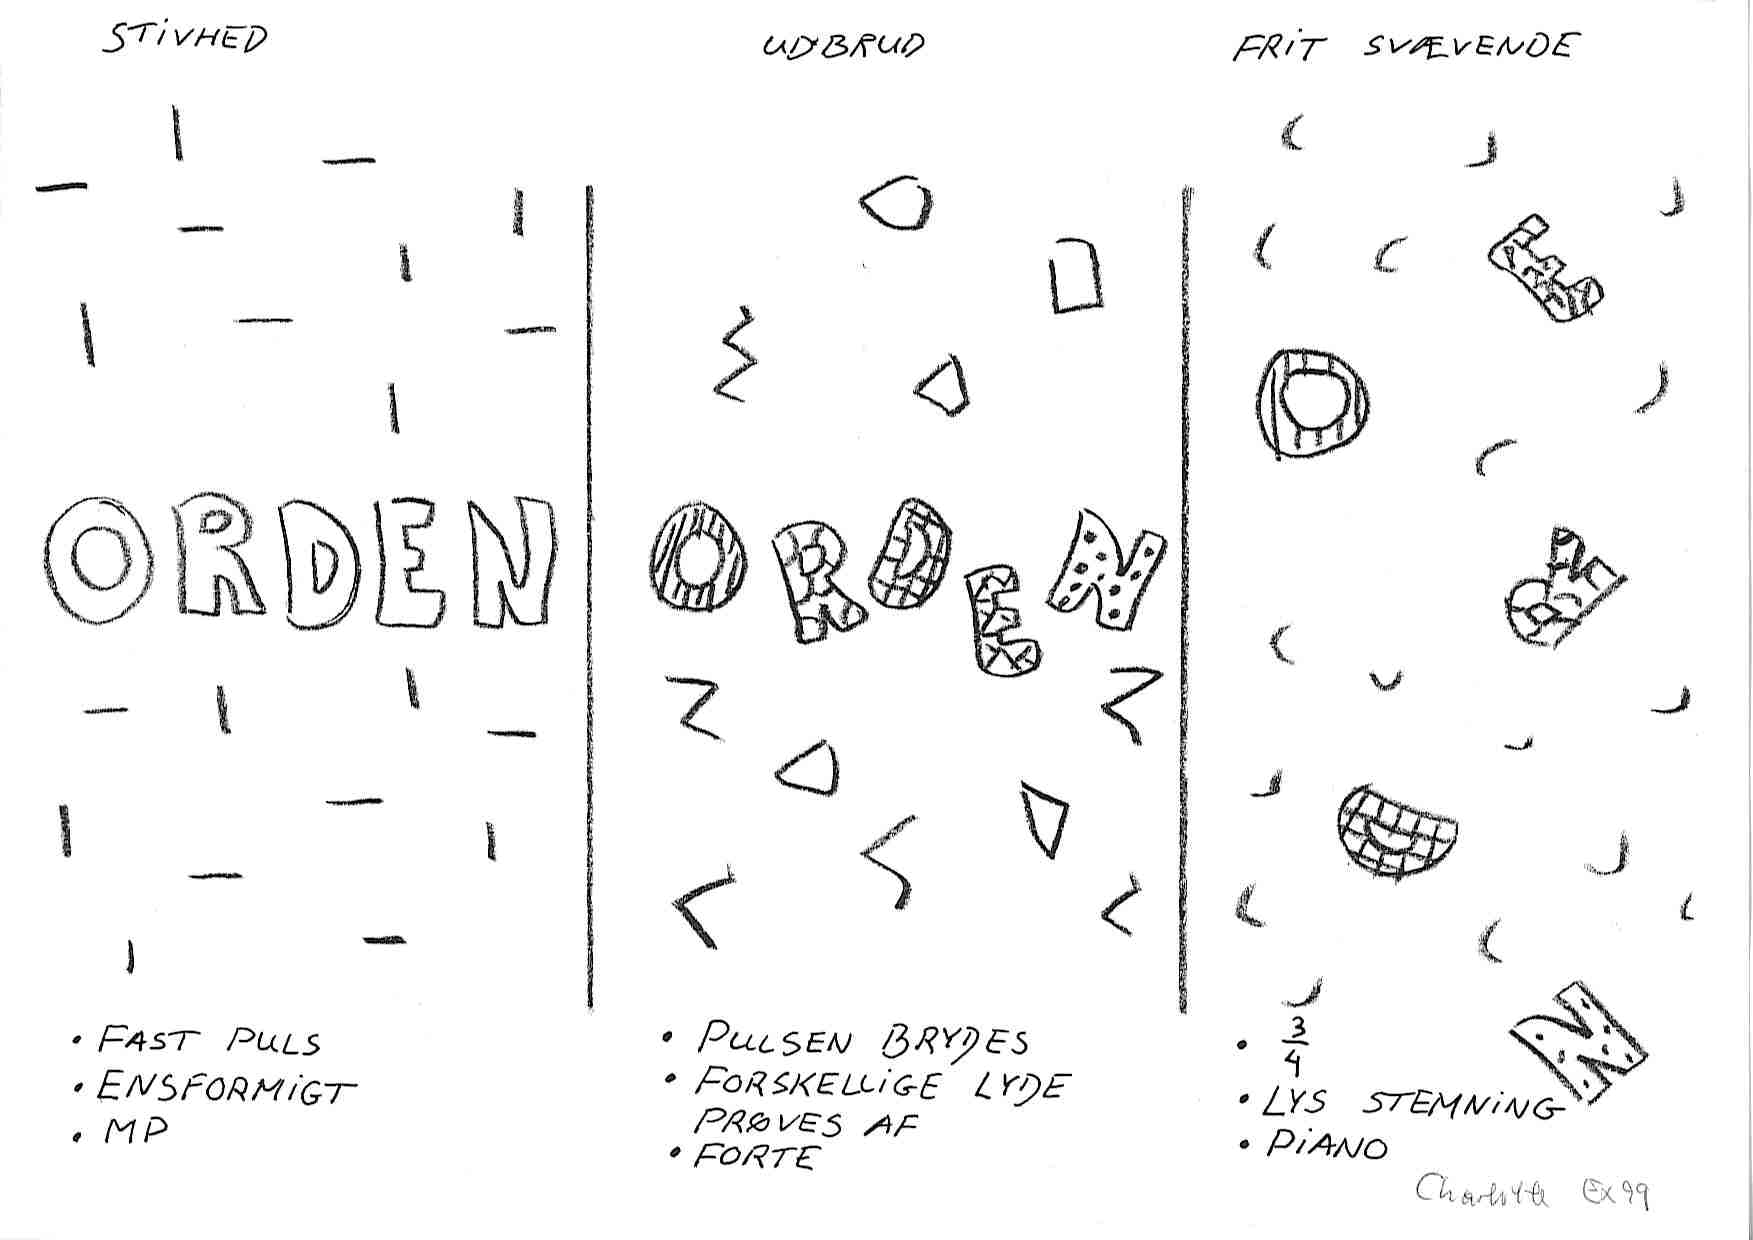 STIVHED
UDBRUD
FRIT SVÆVENDE
ORDEN
ORDEN
E
O
R
D
N
• FAST PULS
• ENSFORMIGT
• MP
• PULSEN BRYDES
• FORSKELLIGE LYDE
PRØVES AF
• FORTE
• 3/4
• LYS STEMNING
• PIANO
Charlotte Ex99